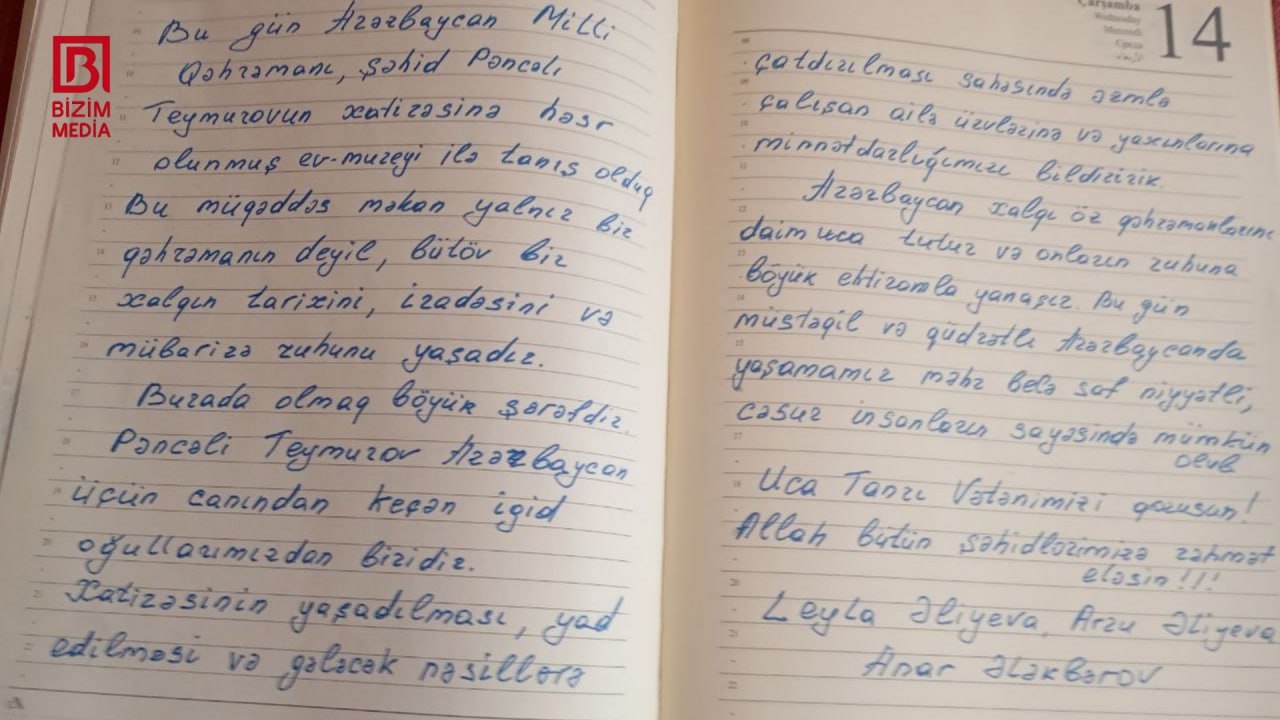 BİZİM
MEDİA
Bu gün Azərbaycan Milli
Qəhrəmanı, Şəhid Pəncəli
Teymurovun xatirəsinə həsr
olunmuş ev-muzeyi ilə tanış olduq
Bu müqəddəs məkan yalnız bir
qəhrəmanın deyil, bütöv bir
xalqın tarixini, iradəsini və
mübarizə ruhunu yaşadır.
Burada olmaq böyük şərəfdir.
Pəncəli Teymurov Azərbaycan
üçün canından keçən igid
oğullarımızdan biridir.
Xatirəsinin yaşadılması, yad
edilməsi və gələcək nəsillərə
Çarşamba
Wednesday
Mercredi
Среда
14
çatdırılması sahəsində əzmlə
çalışan ailə üzvlərinə və yaxınlarına
minnətdarlığımızı bildiririk.
Azərbaycan xalqı öz qəhrəmanlarını
daim uca tutur və onların ruhuna
böyük ehtiramla yanaşır. Bu gün
müstəqil və qüdrətli Azərbaycanda
yaşamamız məhz belə saf niyyətli,
cəsur insanların sayəsində mümkün
olub
Uca Tanrı Vətənimizi qorusun!
Allah bütün şəhidlərimizə rəhmət
eləsin!!!
Leyla Əliyeva, Arzu Əliyeva
Anar Ələkbərov